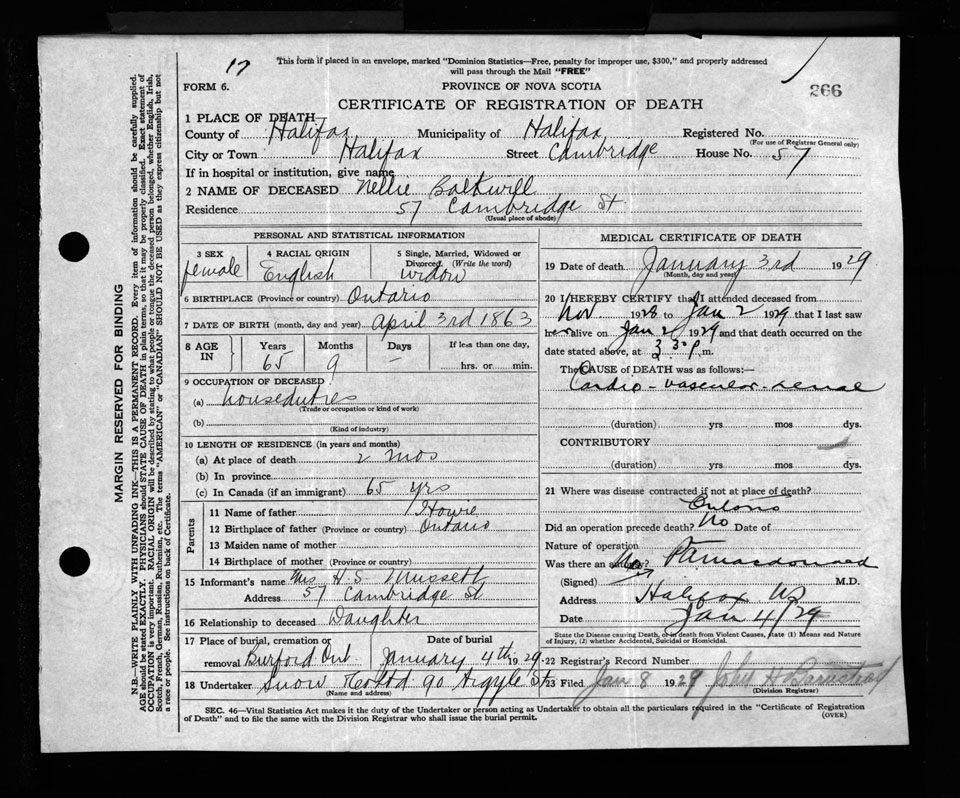 This form if placed in an envelope, marked "Dominion Statistics—Free, penalty for improper use, $300," and properly addressed
17 will pass through the Mail "FREE"
FORM 6. PROVINCE OF NOVA SCOTIA 266
CERTIFICATE OF REGISTRATION OF DEATH
1 PLACE OF DEATH
County of Halifax Municipality of Halifax Registered No.
(For use of Registrar General only)
City or Town Halifax Street Cambridge House No. 57
If in hospital or institution, give name
2 NAME OF DECEASED Nellie Balkwill
Residence 57 Cambridge St
(Usual place of abode)
PERSONAL AND STATISTICAL INFORMATION
3 SEX 4 RACIAL ORIGIN 5 Single, Married, Widowed or Divorced (Write the word)
female English widow
6 BIRTHPLACE (Province or country) Ontario
7 DATE OF BIRTH (month, day and year) April 3rd 1863
8 AGE IN Years Months Days If less than one day,
65 9 — hrs. or min.
9 OCCUPATION OF DECEASED
(a) houseduties
(Trade or occupation or kind of work)
(b)
(Kind of industry)
10 LENGTH OF RESIDENCE (in years and months)
(a) At place of death 2 mos
(b) In province
(c) In Canada (if an immigrant) 65 yrs
Parents
11 Name of father Howie
12 Birthplace of father (Province or country) Ontario
13 Maiden name of mother
14 Birthplace of mother
15 Informant's name Mrs H. S. Mussett
Address 57 Cambridge St
16 Relationship to deceased Daughter
17 Place of burial, cremation or Date of burial
removal Burford Ont January 4th 1929.
18 Undertaker Snow & Co Ltd 90 Argyle St
(Name and address)
MEDICAL CERTIFICATE OF DEATH
19 Date of death January 3rd 1929
(Month, day and year)
20 I HEREBY CERTIFY that I attended deceased from
Nov 1928 to Jan 2 1929 that I last saw
her alive on Jan 2 1929 and that death occurred on the
date stated above, at 3.30 p.m.
The CAUSE of DEATH was as follows:—
Cardio-vascular-renal
(duration) yrs mos dys.
CONTRIBUTORY
(duration) yrs. mos dys.
21 Where was disease contracted if not at place of death?
Ontario
Did an operation precede death? No Date of
Nature of operation
Was there an autopsy? No
(Signed) M.D.
Address Halifax NS
Date Jan 4/29
State the Disease causing Death, or in death from Violent Causes, state (1) Means and Nature
of Injury, (2) whether Accidental, Suicidal or Homicidal.
22 Registrar's Record Number
23 Filed Jan 8 1929 John H
(Division Registrar)
SEC. 46—Vital Statistics Act makes it the duty of the Undertaker or person acting as Undertaker to obtain all the particulars required in the "Certificate of Registration
of Death" and to file the same with the Division Registrar who shall issue the burial permit. (OVER)
MARGIN RESERVED FOR BINDING
N.B.—WRITE PLAINLY WITH UNFADING INK—THIS IS A PERMANENT RECORD. Every item of information should be carefully supplied.
AGE should be stated EXACTLY. PHYSICIANS should STATE CAUSE OF DEATH in plain terms, so that it may be properly classified. Exact statement of
OCCUPATION is very important. RACIAL ORIGIN will be described by stating to what people or tongue the deceased person belonged, whether English, Irish,
Scotch, French, German, Russian, Ruthenian, etc. The terms "AMERICAN" or "CANADIAN" SHOULD NOT BE USED as they express citizenship but not
a race or people. See instructions on back of Certificate.